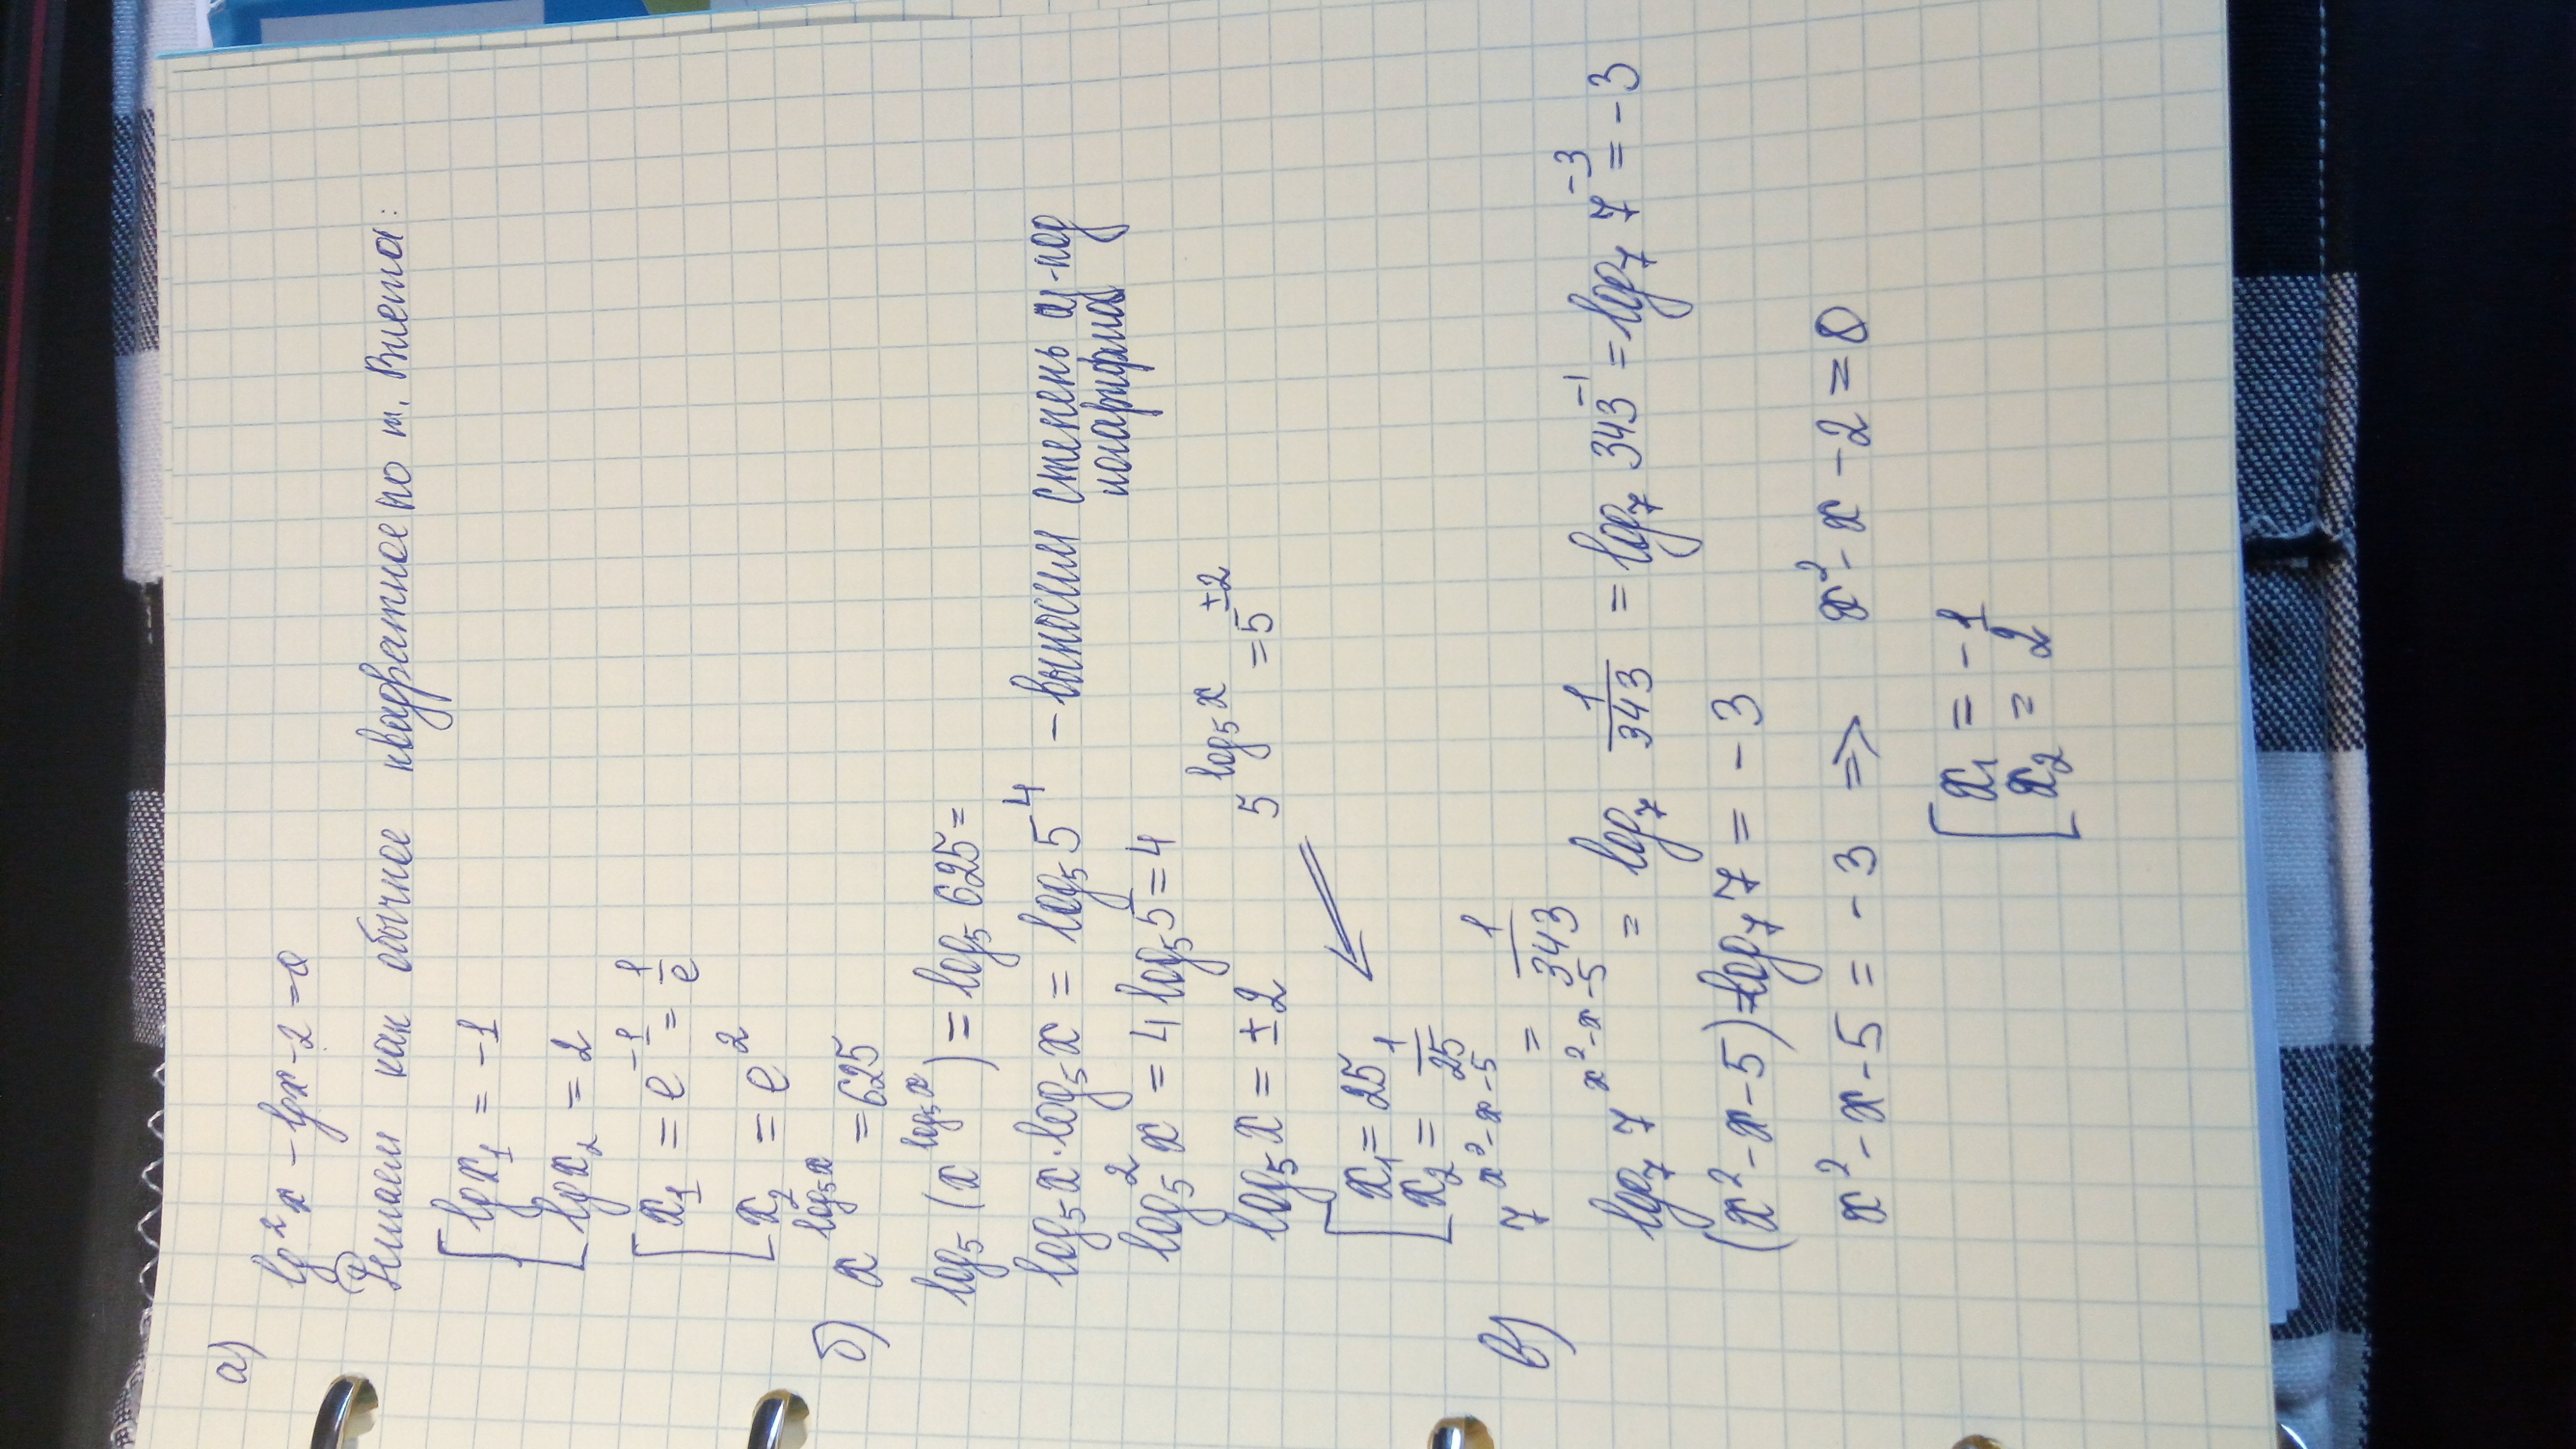 а) lg²x - lgx - 2 = 0
Решаем как обычное квадратное по т. Виета:
[ lg x₁ = -1
lg x₂ = 2
[ x₁ = e⁻¹ = 1/e
x₂ = e²
б) x^(log₅x) = 625
log₅(x^(log₅x)) = log₅ 625 =
log₅x · log₅x = log₅5⁴ - выносим степень из-под
логарифма
log₅²x = 4 log₅5 = 4
log₅x = ±2 5^(log₅x) = 5^(±2)
[ x₁ = 25
x₂ = 1/25
в) 7^(x²-x-5) = 1/343
log₇ 7^(x²-x-5) = log₇ 1/343 = log₇ 343⁻¹ = log₇ 7⁻³ = -3
(x²-x-5)=log₇7 = -3
x²-x-5 = -3 => x²-x-2=0
[ x₁ = -1
x₂ = 2